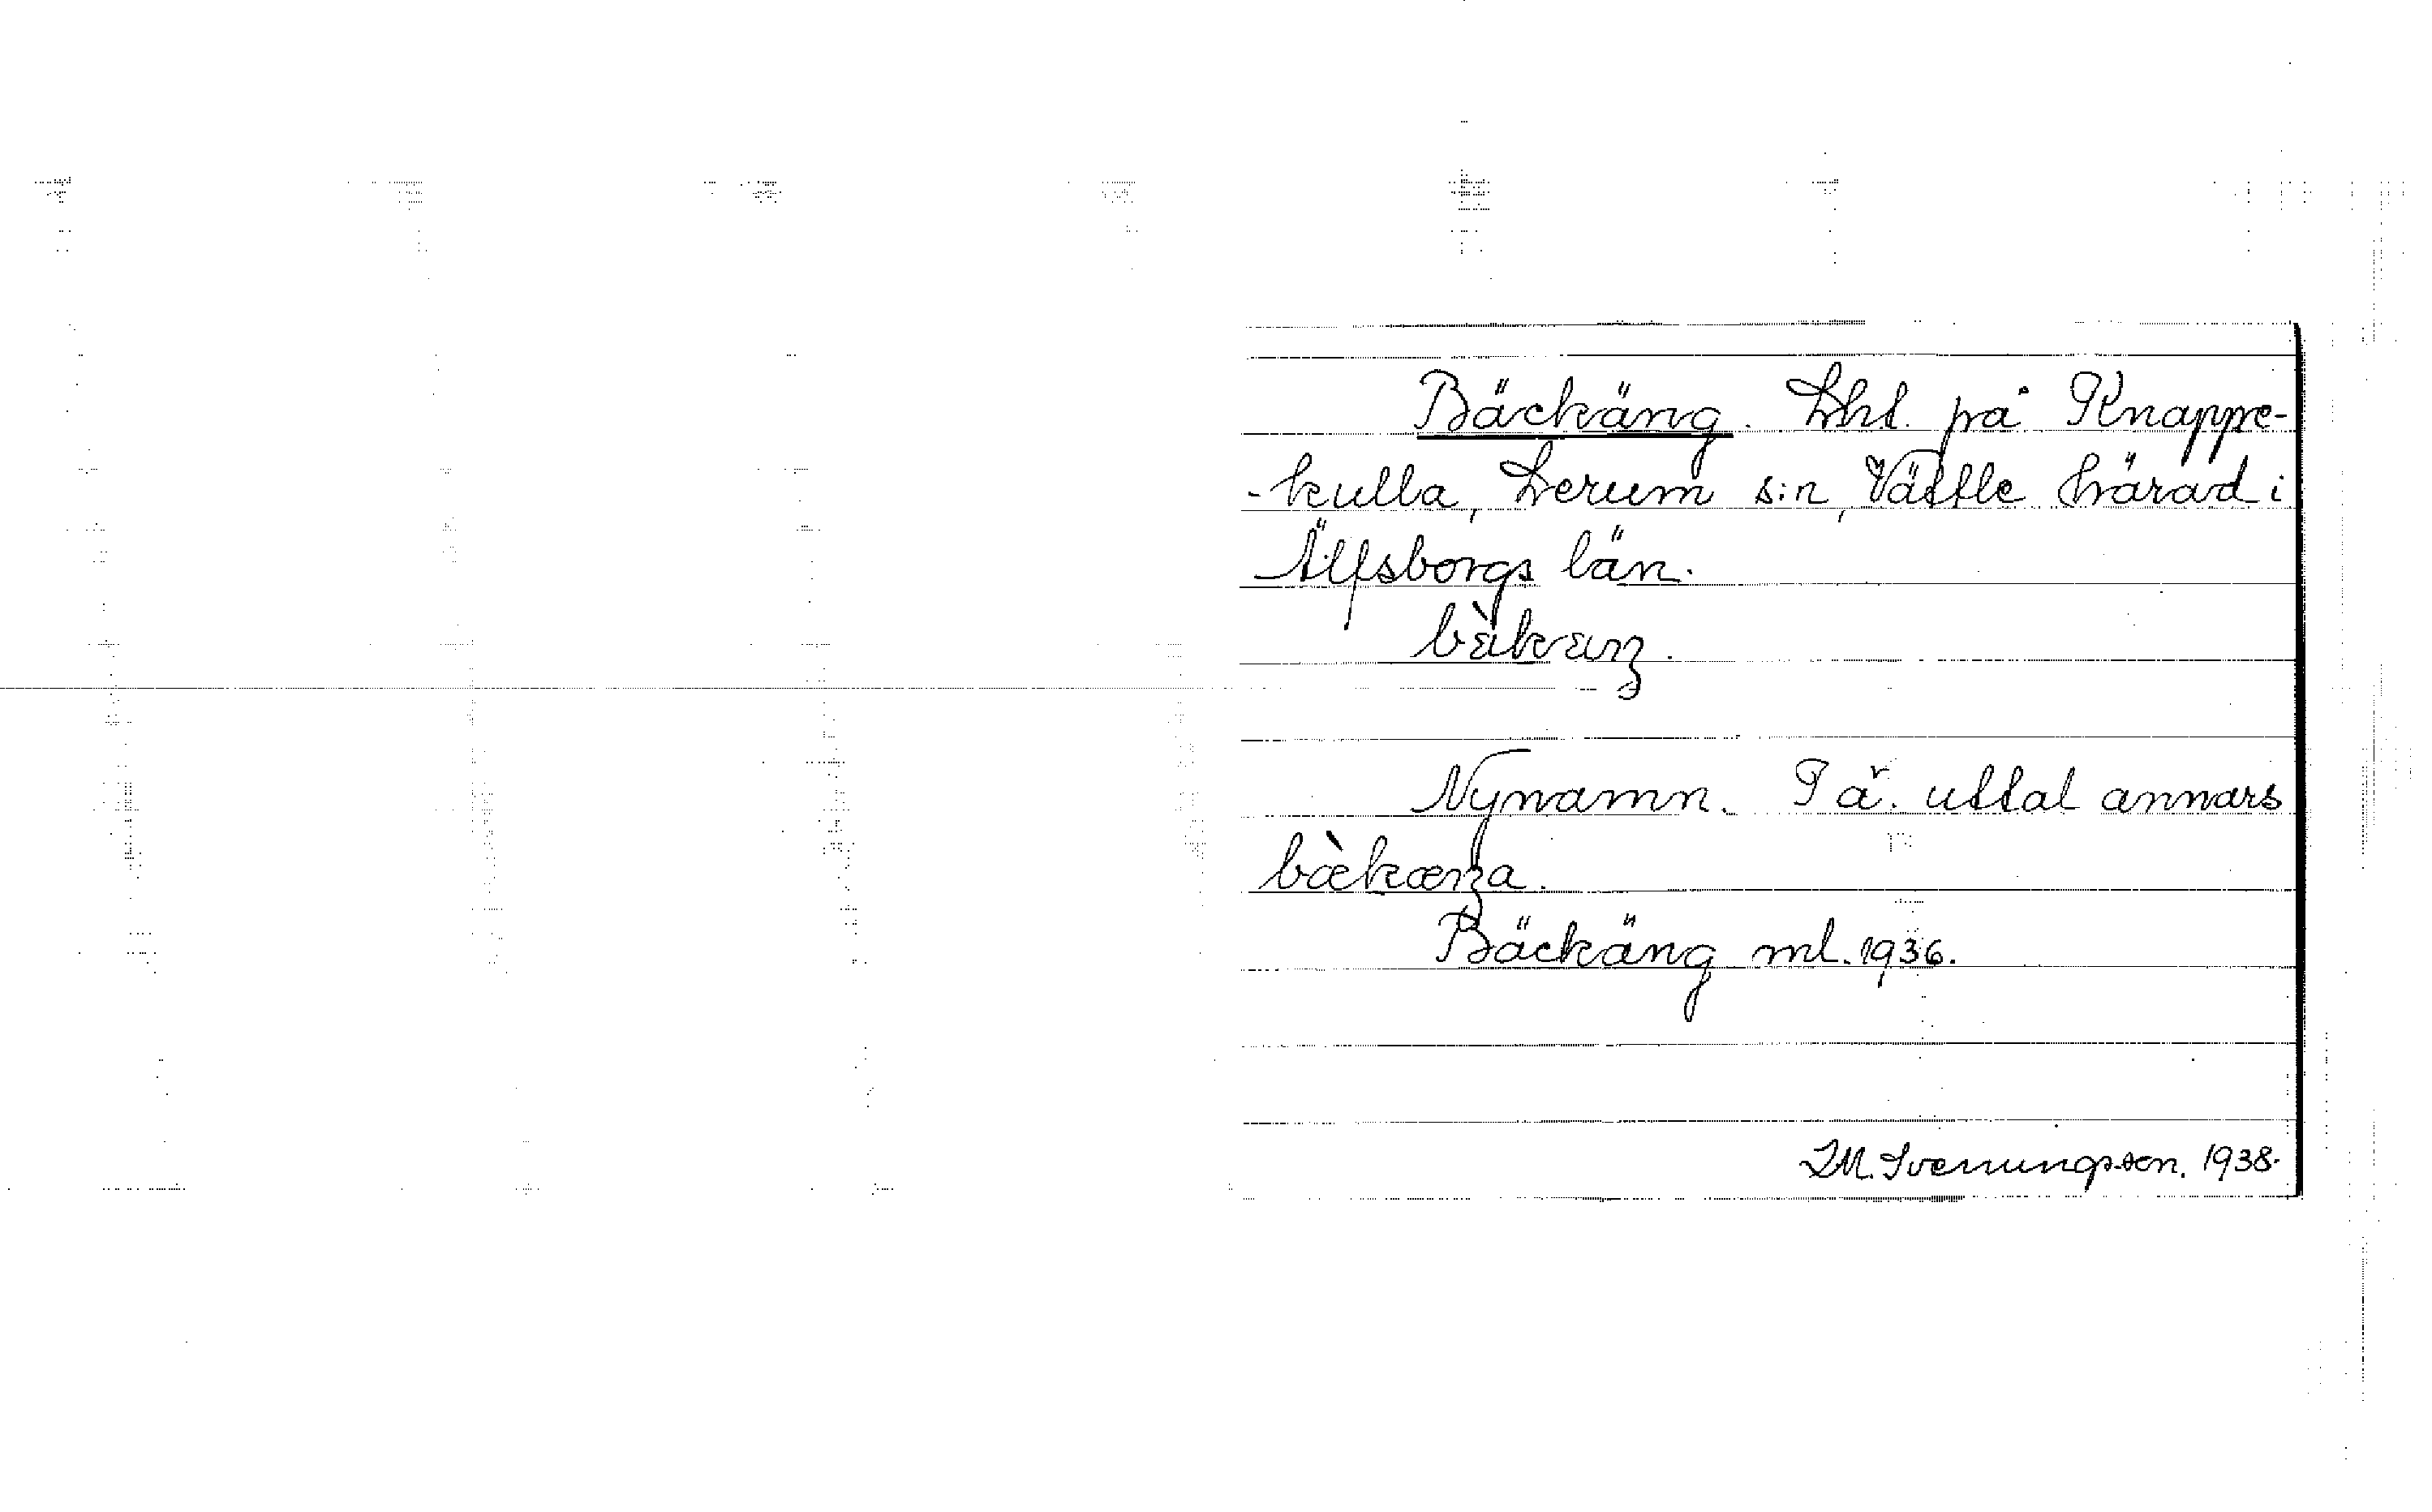 Bäckäng. Lht. på Knappe-
-kulla, Lerum s:n, Vättle härad i
Älfsborgs län.
bɛ̀kɛŋ.
Nynamn. I ä. uttal annars
bæ̀kæŋa.
Bäckäng ml. 1936.
I.M. Svenungsson. 1938.